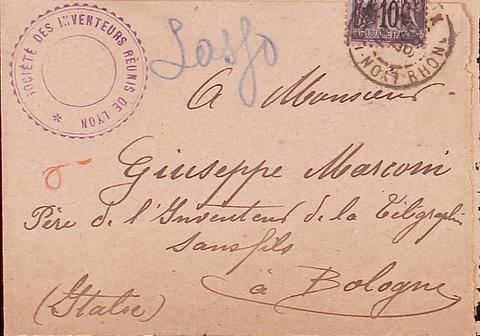 SOCIÉTÉ DES INVENTEURS RÉUNIS DE LYON
Sasso
10
RHÔNE
A Monsieur
Giuseppe Marconi
Père de l'Inventeur de la Télégraphie
sans fils
à Bologne
(Italie)